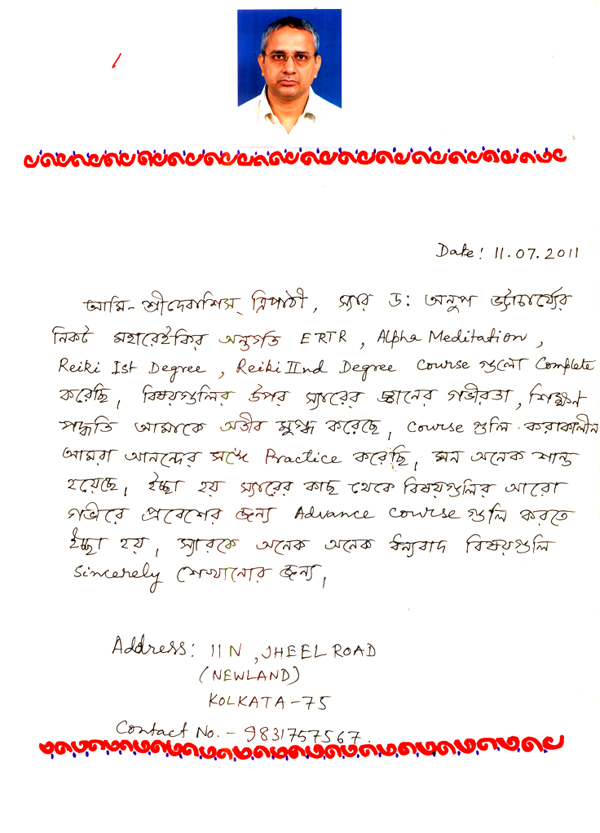 Date: 11.07.2011
আমি- শ্রীদেবাশিস্ ত্রিপাঠী, স্যার ড: অনুপ ভট্টাচার্য্যের
নিকট মহারেইকির অন্তর্গত ERTR, Alpha Meditation,
Reiki Ist Degree, Reiki IInd Degree Course গুলো Complete
করেছি, বিষয়গুলির উপর স্যারের জ্ঞানের গভীরতা, শিক্ষণ
পদ্ধতি আমাকে অতীব মুগ্ধ করেছে, Course গুলি করাকালীন
আমরা আনন্দের সঙ্গে Practice করেছি, মন অনেক শান্ত
হয়েছে, ইচ্ছা হয় স্যারের কাছ থেকে বিষয়গুলির আরো
গভীরে প্রবেশের জন্য Advance Course গুলি করতে
ইচ্ছা হয়, স্যারকে অনেক অনেক ধন্যবাদ বিষয়গুলি
Sincerely শেখানোর জন্য,
Address: 11N, JHEEL ROAD
(NEWLAND)
KOLKATA-75
Contact No. - 9831757567.